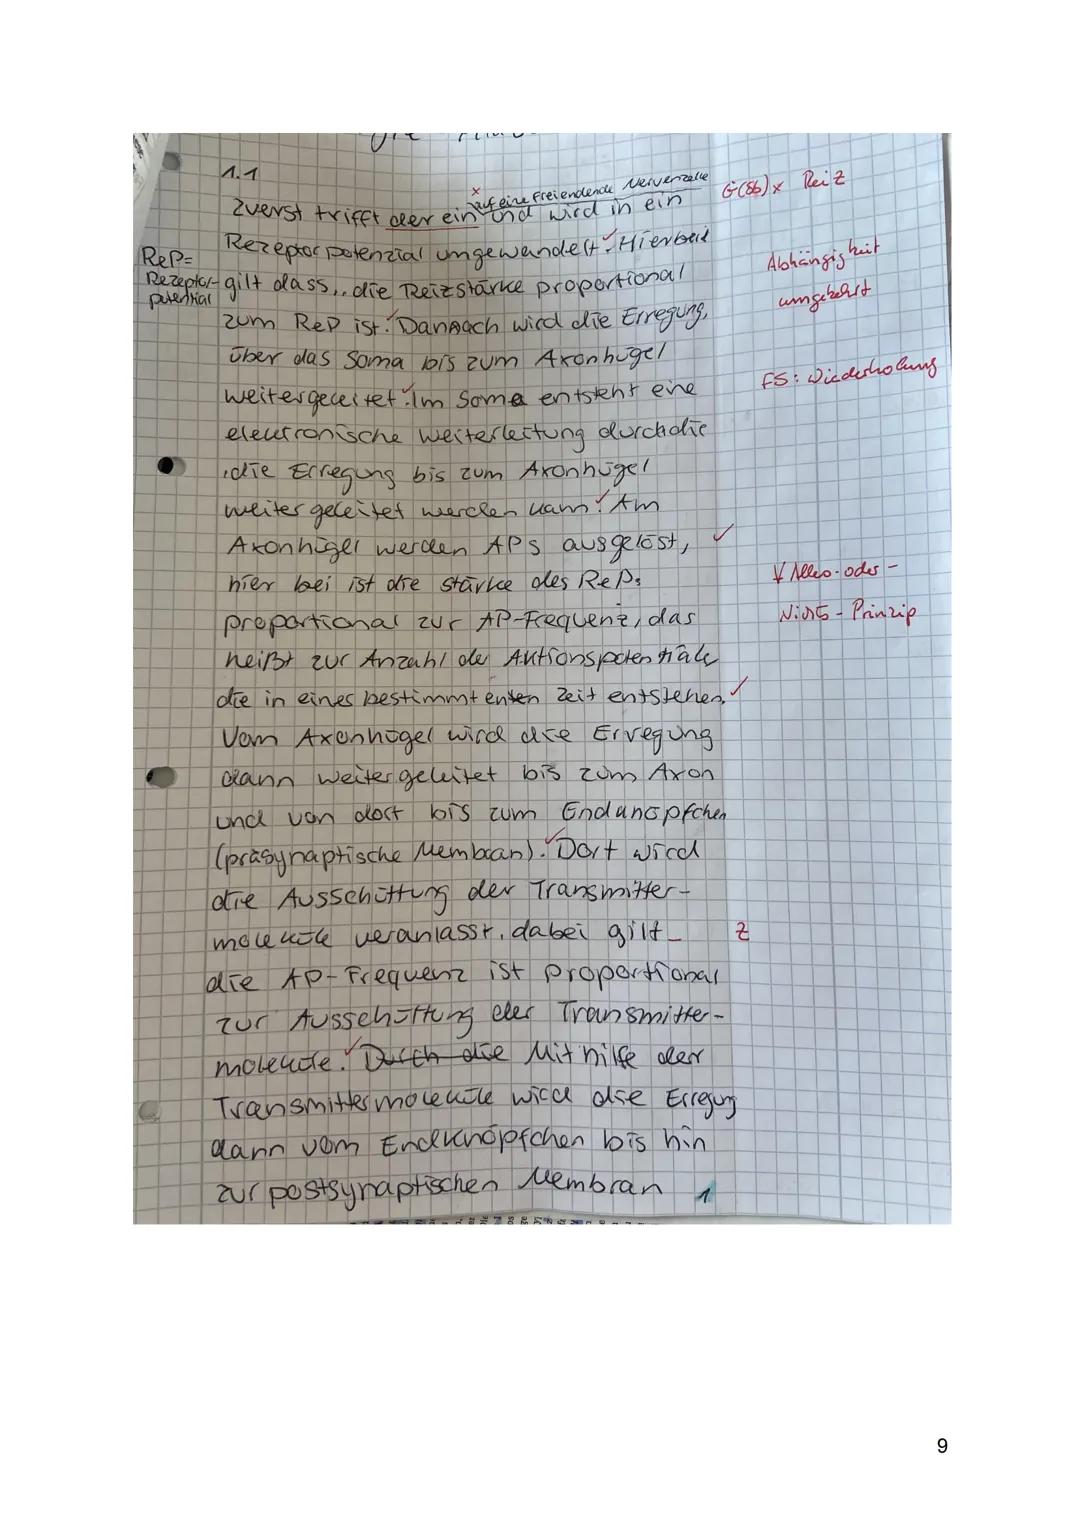 1.1
x
auf eine freiendende Nervenzelle
G(Sb) x Reiz
Zuerst trifft der ein und wird in ein
Rezeptorpotenzial umgewandelt. Hierbei
Abhängigkeit
umgekehrt
ReP=
Rezeptor-
potential
gilt dass, die Reizstärke proportional
zum ReP ist. Danach wird die Erregung,
über das Soma bis zum Axonhügel
FS: Wiederholung
weitergeleitet. Im Soma entsteht eine
elektronische Weiterleitung durch die
die Erregung bis zum Axonhügel
weiter geleitet werden kann. Am
Axonhügel werden APs ausgelöst,
hier bei ist die stärke des RePs
↯ Alles-oder-
Nichts-Prinzip
proportional zur AP-Frequenz, das
heißt zur Anzahl der Aktionspotentiale
die in einer bestimmten Zeit entstehen.
Vom Axonhügel wird die Erregung
dann weitergeleitet bis zum Axon
und von dort bis zum Endknöpfchen
(präsynaptische Membran). Dort wird
die Ausschüttung der Transmitter-
moleküle veranlasst, dabei gilt
Z
die AP-Frequenz ist proportional
zur Ausschüttung der Transmitter-
moleküle. Durch die Mit hilfe der
Transmittermoleküle wird die Erregung
dann vom Endknöpfchen bis hin
zur postsynaptischen Membran 1
9